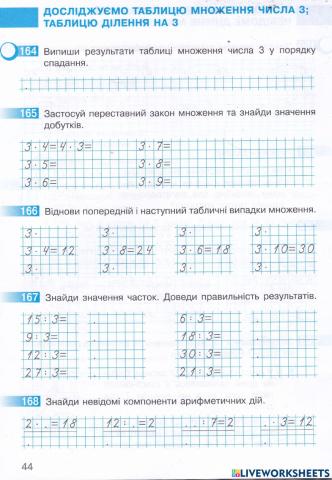 ДОСЛІДЖУЄМО ТАБЛИЦЮ МНОЖЕННЯ ЧИСЛА 3;
ТАБЛИЦЮ ДІЛЕННЯ НА 3
164 Випиши результати таблиці множення числа 3 у порядку
спадання.
165 Застосуй переставний закон множення та знайди значення
добутків.
3 · 4 = 4 · 3 = 3 · 7 =
3 · 5 = 3 · 8 =
3 · 6 = 3 · 9 =
166 Віднови попередній і наступний табличні випадки множення.
3 · 3 · 3 · 3 ·
3 · 4 = 12 3 · 8 = 24 3 · 6 = 18 3 · 10 = 30
3 · 3 · 3 · 3 ·
167 Знайди значення часток. Доведи правильність результатів.
15 : 3 = . 6 : 3 = .
9 : 3 = . 18 : 3 = .
12 : 3 = . 30 : 3 = .
27 : 3 = . 21 : 3 = .
168 Знайди невідомі компоненти арифметичних дій.
2 · . = 18 12 : . = 2 . . : 7 = 2 . · 3 = 12
44
LIVEWORKSHEETS